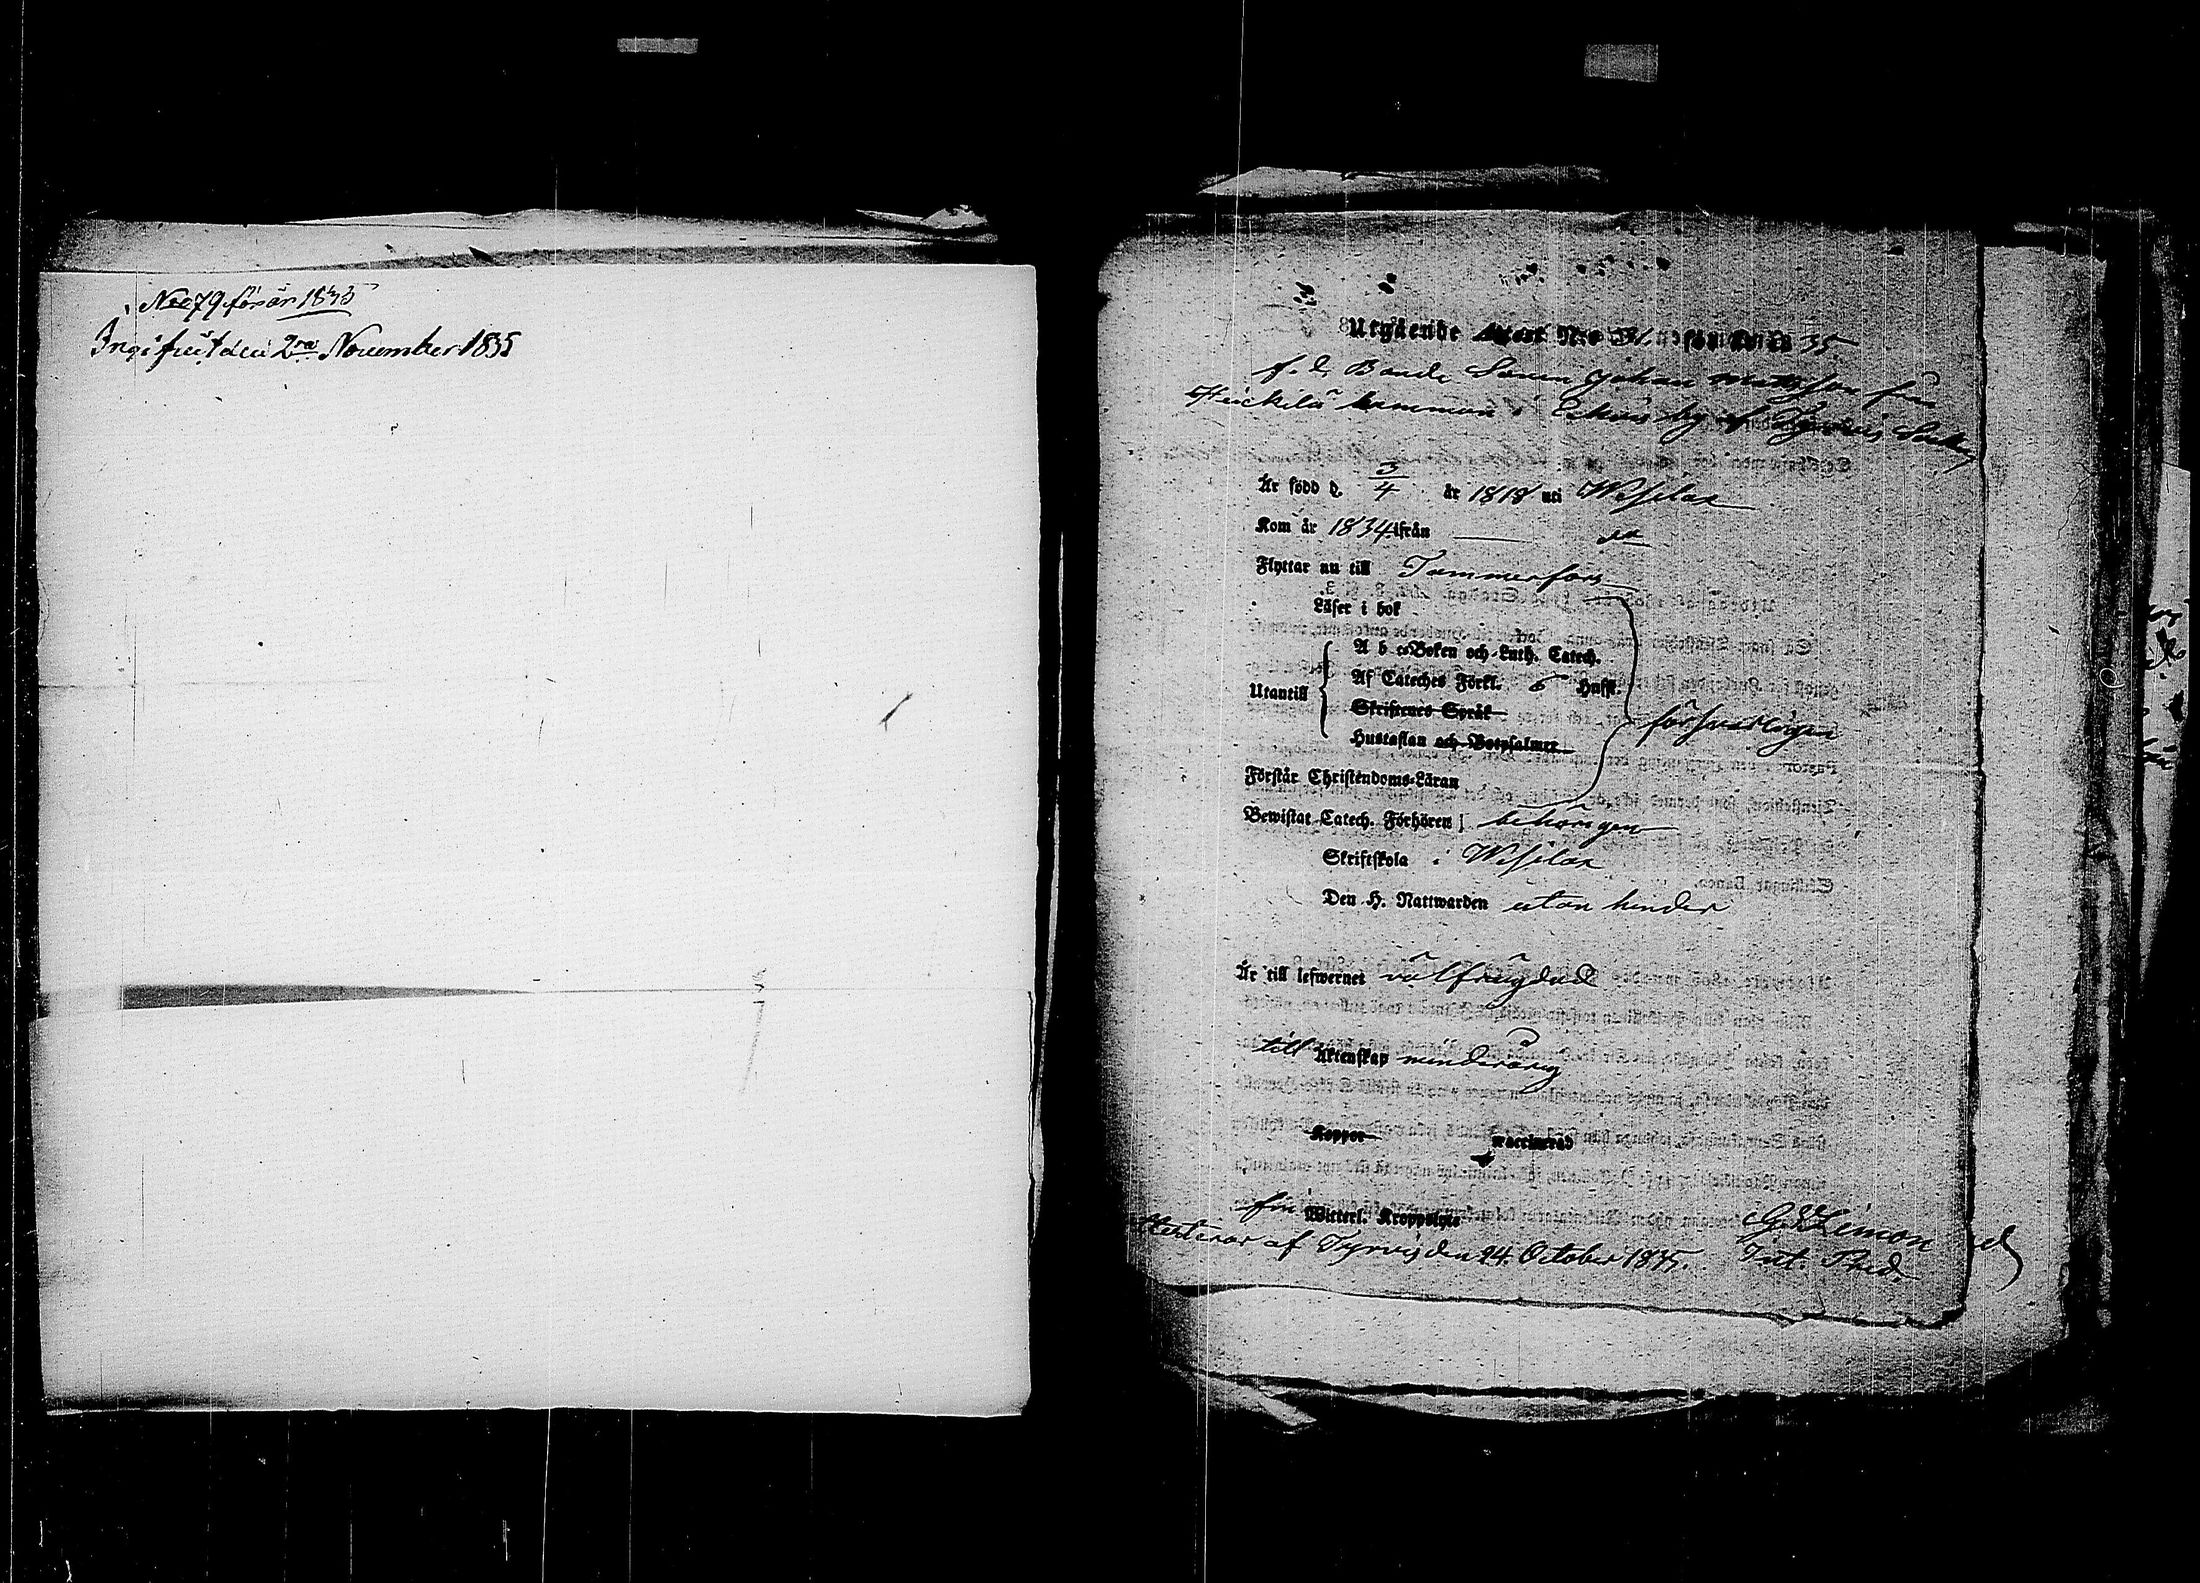 No 79 för år 1835
Ingifvit den 2ra November 1835
Utgående Attest Nro för År 1835
f. d. Bonde Sonen Johan Mattsson från
Heickilä hemman i by af Tyrvis Sockn
Är född d. 3/4 år 1818 uti Wesilax
Kom år 1834 ifrån — do
Flyttar nu till Tammerfors
Läser i bok
A b c-Boken och Luth. Catech.
Af Cateches Förkl. 6 Hufst.
Utantill
Skriftenes Språk
Hustaflan och Botpsalmer
försvarligen
Förstår Christendoms-Läran
Bewistat Catech. Förhören behörigen
Skriftskola i Wesilax
Den H. Nattwarden utan hinder
Är till lefwernet välfrägdad
till Äktenskap minderårig
Koppor vaccinerad
från Witterl. Kroppslyte
af Tyrvis den 24. October 1835.
Limon
Pred.